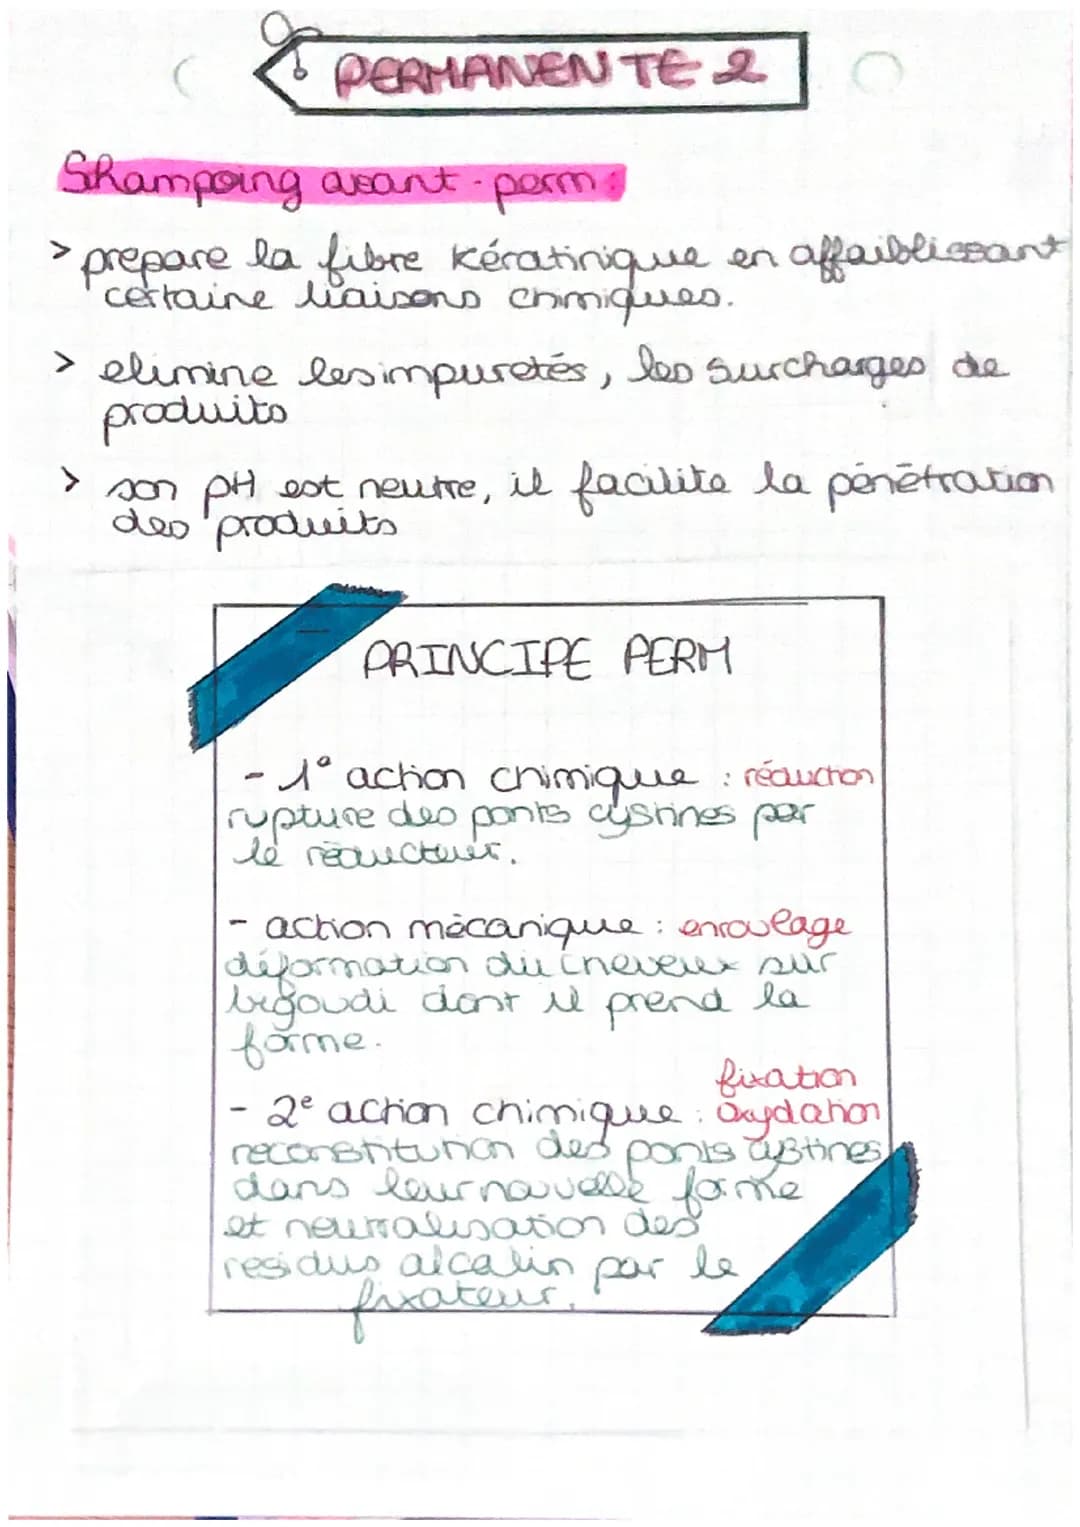 PERMANENTE 2
Shampoing avant-perm:
> prepare la fibre kératinique en affaiblissant
certaine liaisons chimiques.
> elimine les impuretés, les surcharges de
produits
> son pH est neutre, il facilite la pénétration
des produits
PRINCIPE PERM
- 1° action chimique : réduction
rupture des ponts cystines par
le réducteur.
- action mécanique : enroulage
déformation du cheveux sur
bigoudi dont il prend la
forme.
fixation
- 2e action chimique : Oxydation
reconstitution des ponts cystines
dans leur nouvelle forme
et neutralisation des
residus alcalin par le
fixateur.